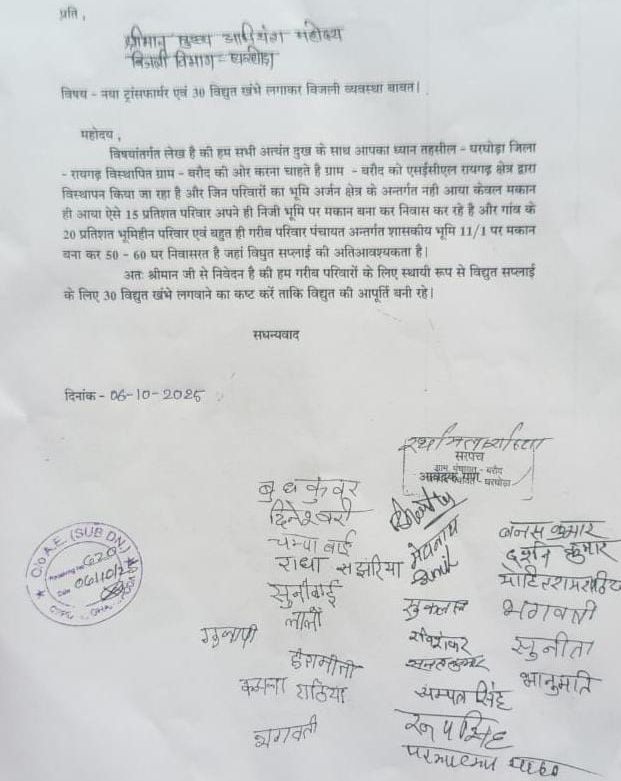 प्रति,
श्रीमान मुख्य अभियंता महोदय
बिजली विभाग - घरघोड़ा
विषय - नया ट्रांसफार्मर एवं 30 विद्युत खंभे लगाकर विजली व्यवस्था बावत।
महोदय,
विषयांतर्गत लेख है की हम सभी अत्यंत दुख के साथ आपका ध्यान तहसील - घरघोड़ा जिला
- रायगढ़ विस्थापित ग्राम - बरौद की ओर करना चाहते है ग्राम - बरौद को एसईसीएल रायगढ़ क्षेत्र द्वारा
विस्थापन किया जा रहा है और जिन परिवारों का भूमि अर्जन क्षेत्र के अन्तर्गत नही आया केवल मकान
ही आया ऐसे 15 प्रतिशत परिवार अपने ही निजी भूमि पर मकान बना कर निवास कर रहे है और गांव के
20 प्रतिशत भूमिहीन परिवार एवं बहुत ही गरीब परिवार पंचायत अन्तर्गत शासकीय भूमि 11/1 पर मकान
बना कर 50 - 60 घर निवासरत है जहां विघुत सप्लाई की अतिआवश्यकता है।
अतः श्रीमान जी से निवेदन है की हम गरीब परिवारों के लिए स्थायी रूप से विद्युत सप्लाई
के लिए 30 विद्युत खंभे लगवाने का कष्ट करें ताकि विद्युत की आपूर्ति बनी रहे।
सघन्यवाद
दिनांक - 06-10-2025
सरपंच
ग्राम पंचायत - बरौद
आवेदक गण
घरघोड़ा
बुधकुंवर
दिनेश्वरी
चम्पा बाई
राधा
मेघनाथ
Sunil
सुनीबाई
लाली
गुलापी
कमला राठिया
भगवती
रविशंकर
चम्पत सिंह
रूपसिंह
बनस कुमार
दर्शन कुमार
भगवती
सुनीता
भानुमति
O/o A.E. (SUB DN.)
620
Date 06/10/25